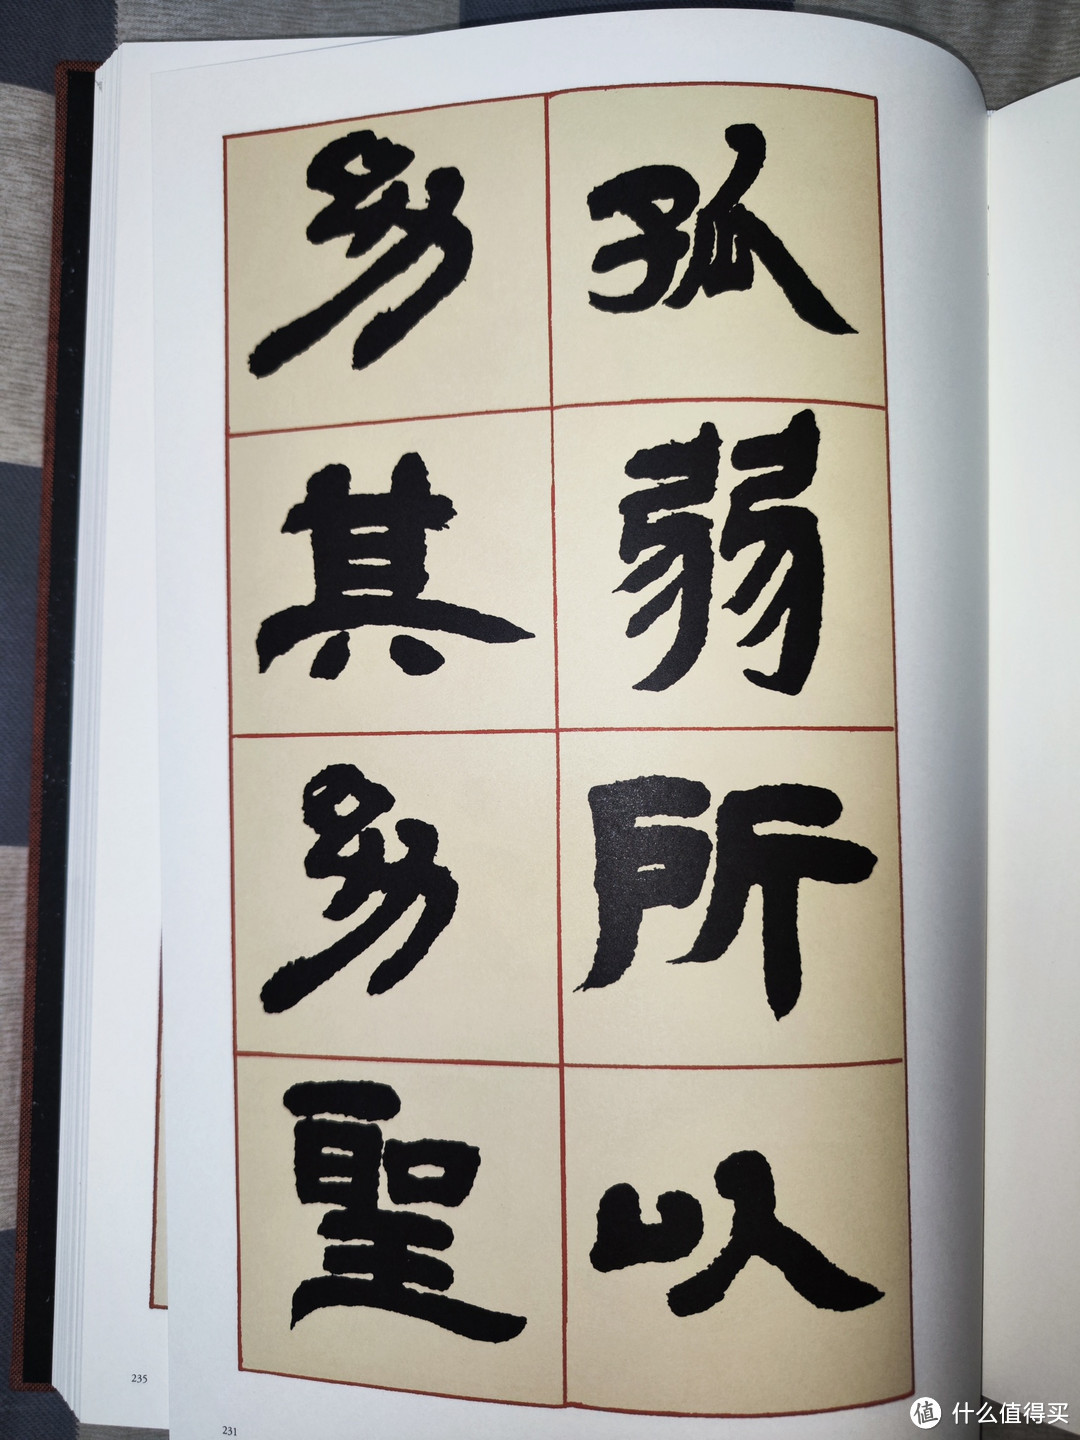 孤弱所以
幼其幼聖
235
231
值 什么值得买